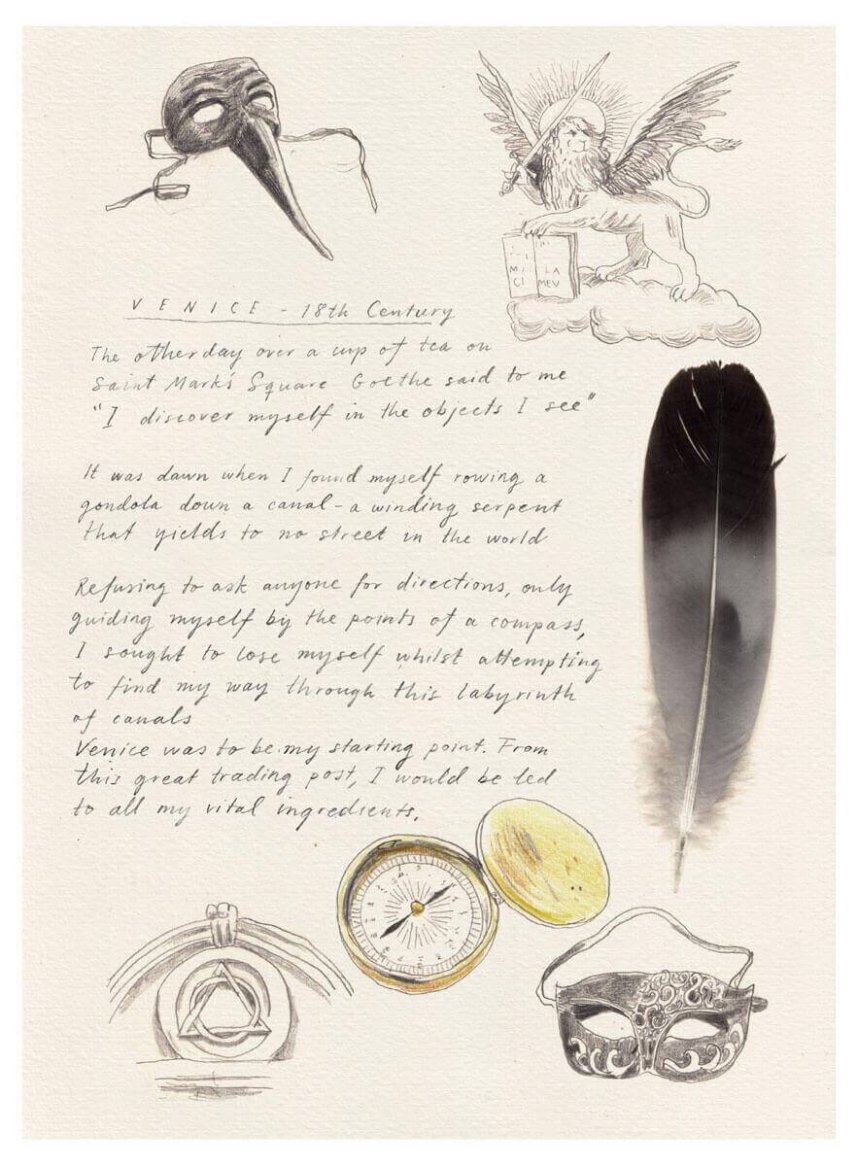 MI
CI
LA
MEV
VENICE - 18th Century
The other day over a cup of tea on
Saint Mark's Square Goethe said to me
"I discover myself in the objects I see"
It was dawn when I found myself rowing a
gondola down a canal - a winding serpent
that yields to no street in the world
Refusing to ask anyone for directions, only
guiding myself by the points of a compass,
I sought to lose myself whilst attempting
to find my way through this labyrinth
of canals
Venice was to be my starting point. From
this great trading post, I would be led
to all my vital ingredients.